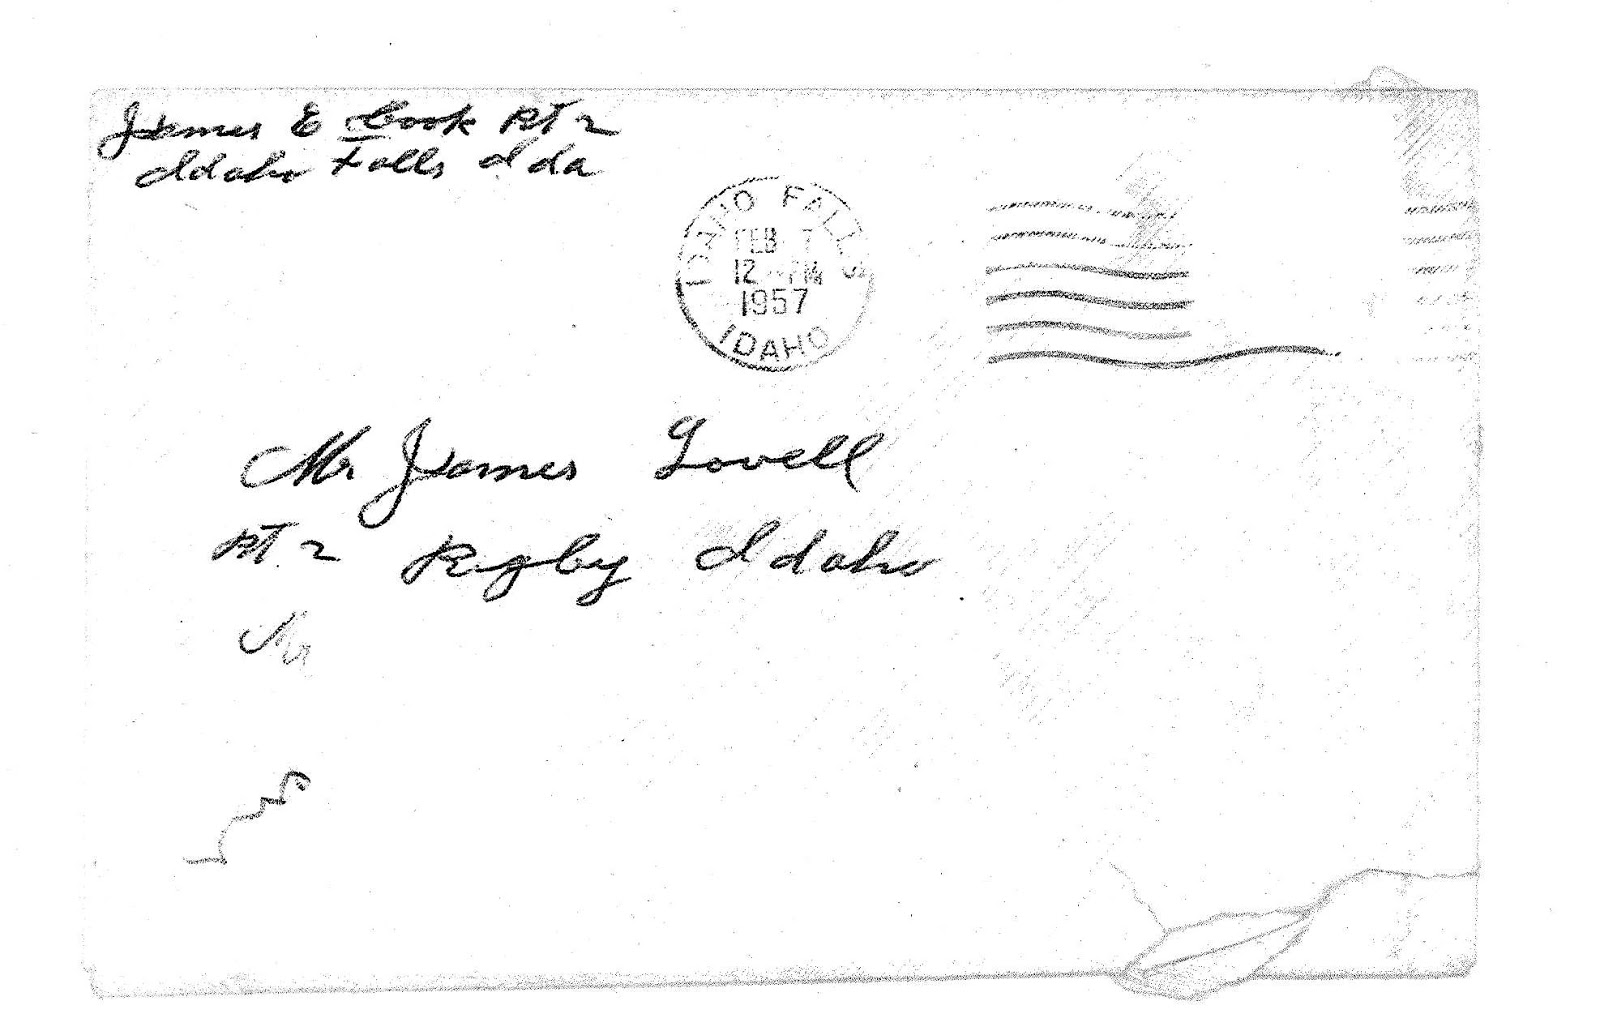 James E Cook Rt 2
Idaho Falls Ida
IDAHO FALLS
FEB 7
12 - PM
1957
IDAHO
Mr James Lovell
Rt 2 Rigby Idaho
Mr